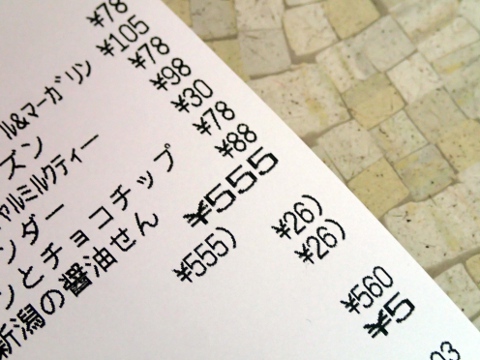 ¥78
ル&マーガリン ¥105
ズン ¥78
ャルミルクティー ¥98
ンダー ¥30
ンとチョコチップ ¥78
新潟の醤油せん ¥88
¥555
¥555)
¥26)
¥26)
¥560
¥5
03